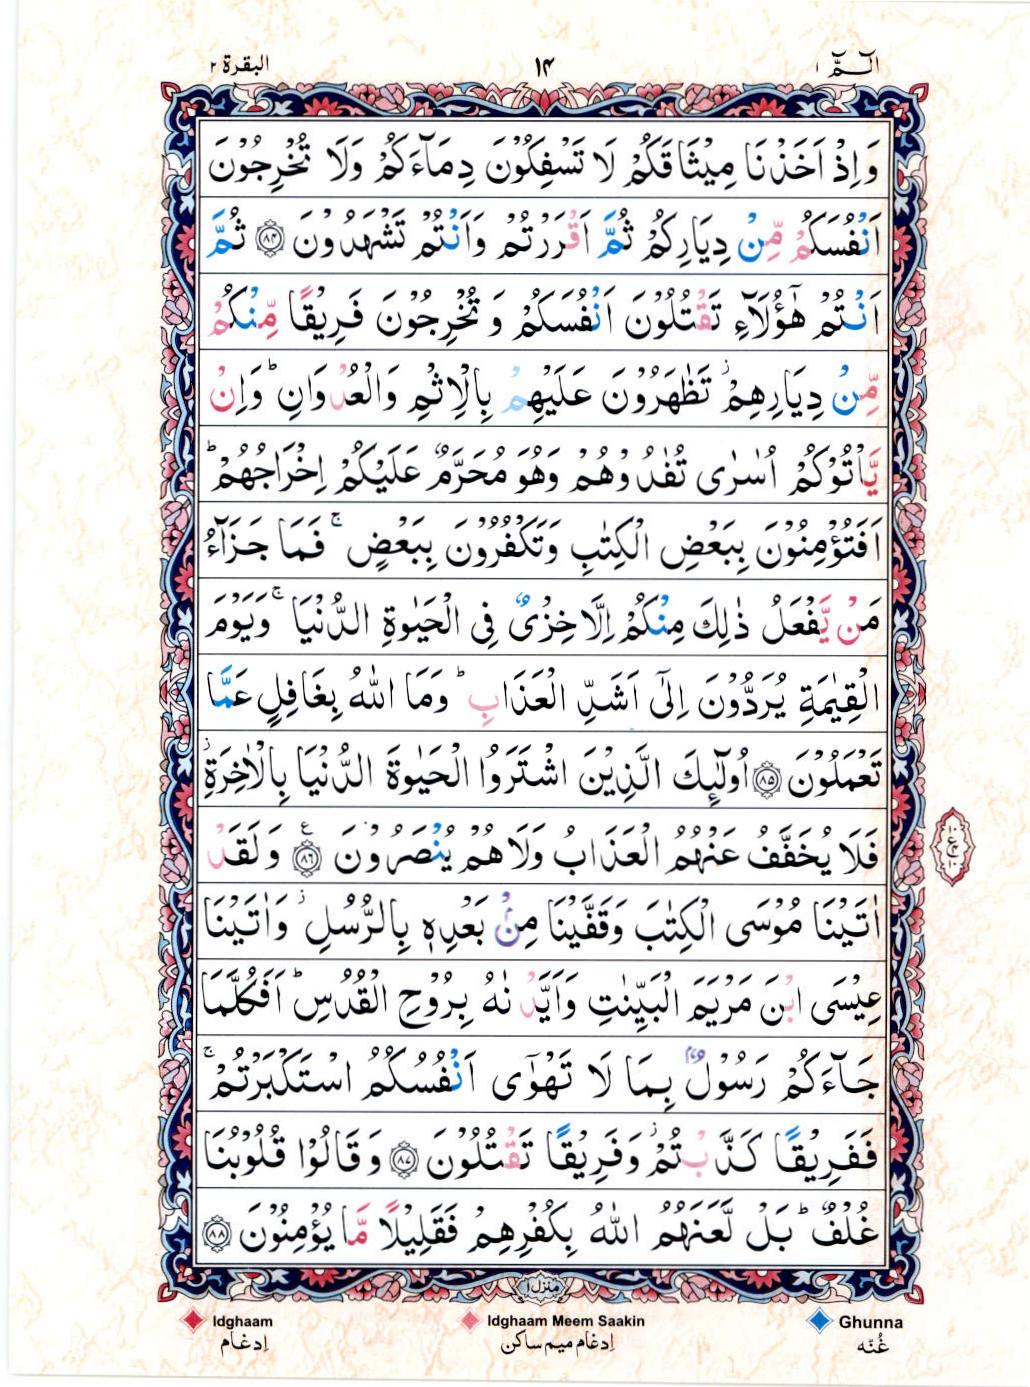 الٓـمّٓ ۱
۱۴
البقرة ۲
وَاِذْ اَخَذْنَا مِيْثَاقَكُمْ لَا تَسْفِكُوْنَ دِمَآءَكُمْ وَلَا تُخْرِجُوْنَ
اَنْفُسَكُمْ مِّنْ دِيَارِكُمْ ثُمَّ اَقْرَرْتُمْ وَاَنْتُمْ تَشْهَدُوْنَ ﴿۸۴﴾ ثُمَّ
اَنْتُمْ هٰٓؤُلَآءِ تَقْتُلُوْنَ اَنْفُسَكُمْ وَتُخْرِجُوْنَ فَرِيْقًا مِّنْكُمْ
مِّنْ دِيَارِهِمْ ؗ تَظٰهَرُوْنَ عَلَيْهِمْ بِالْاِثْمِ وَالْعُدْوَانِ ؕ وَاِنْ
يَّاْتُوْكُمْ اُسٰرٰى تُفٰدُوْهُمْ وَهُوَ مُحَرَّمٌ عَلَيْكُمْ اِخْرَاجُهُمْ ؕ
اَفَتُؤْمِنُوْنَ بِبَعْضِ الْكِتٰبِ وَتَكْفُرُوْنَ بِبَعْضٍ ۚ فَمَا جَزَآءُ
مَنْ يَّفْعَلُ ذٰلِكَ مِنْكُمْ اِلَّا خِزْىٌ فِى الْحَيٰوةِ الدُّنْيَا ۚ وَيَوْمَ
الْقِيٰمَةِ يُرَدُّوْنَ اِلٰٓى اَشَدِّ الْعَذَابِ ؕ وَمَا اللّٰهُ بِغَافِلٍ عَمَّا
تَعْمَلُوْنَ ﴿۸۵﴾ اُولٰٓئِكَ الَّذِيْنَ اشْتَرَوُا الْحَيٰوةَ الدُّنْيَا بِالْاٰخِرَةِ ؗ
فَلَا يُخَفَّفُ عَنْهُمُ الْعَذَابُ وَلَا هُمْ يُنْصَرُوْنَ ﴿۸۶﴾ ع وَلَقَدْ
اٰتَيْنَا مُوْسَى الْكِتٰبَ وَقَفَّيْنَا مِنْۢ بَعْدِهٖ بِالرُّسُلِ ؗ وَاٰتَيْنَا
عِيْسَى ابْنَ مَرْيَمَ الْبَيِّنٰتِ وَاَيَّدْنٰهُ بِرُوْحِ الْقُدُسِ ؕ اَفَكُلَّمَا
جَآءَكُمْ رَسُوْلٌۢ بِمَا لَا تَهْوٰٓى اَنْفُسُكُمُ اسْتَكْبَرْتُمْ ۚ
فَفَرِيْقًا كَذَّبْتُمْ ؗ وَفَرِيْقًا تَقْتُلُوْنَ ﴿۸۷﴾ وَقَالُوْا قُلُوْبُنَا
غُلْفٌ ؕ بَلْ لَّعَنَهُمُ اللّٰهُ بِكُفْرِهِمْ فَقَلِيْلًا مَّا يُؤْمِنُوْنَ ﴿۸۸﴾
منزل ۱
Idghaam
Idghaam Meem Saakin
Ghunna
اِدغام
اِدغام میم ساکن
غُنّه